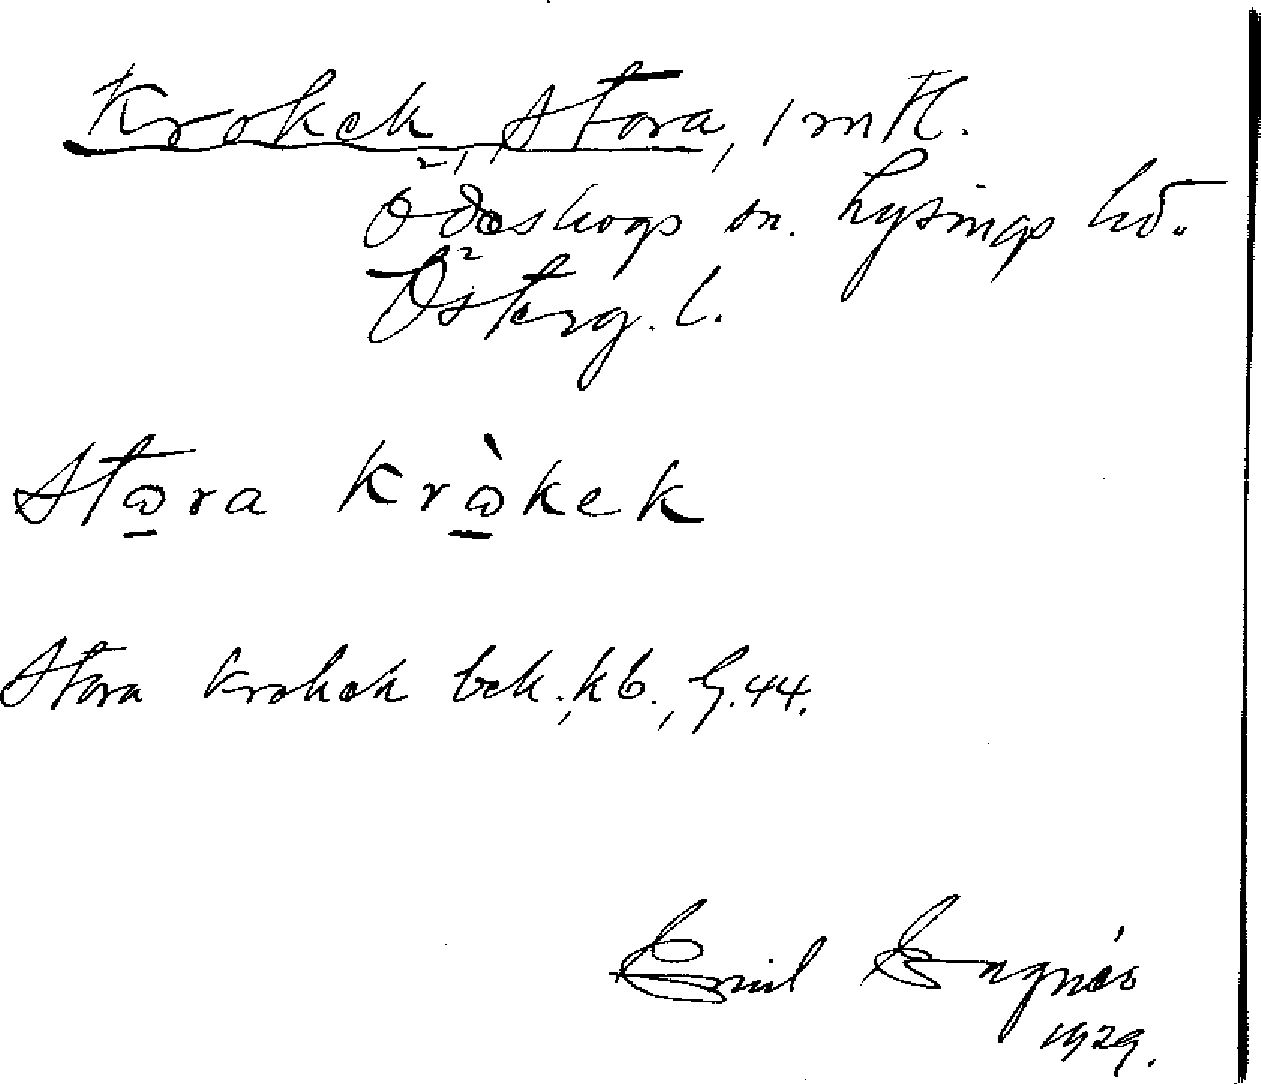 Krokek, Stora, 1 mtl.
Ödeshogs sn. Lysings hd.
Österg. l.
Stω̲ra Krὼ̲kek
Stora Krokek bek., kb., G.44.
Emil
1929.